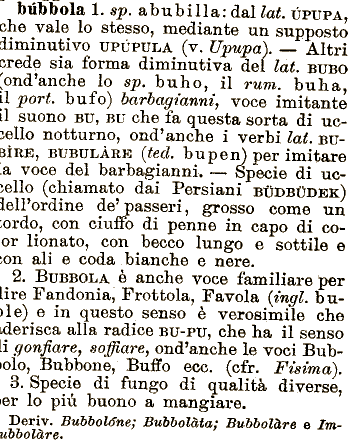 búbbola 1. sp. abubilla: dal lat. ÚPUPA,
che vale lo stesso, mediante un supposto
diminutivo UPÚPULA (v. Upupa). — Altri
crede sia forma diminutiva del lat. BUBO
(ond'anche lo sp. buho, il rum. buha,
il port. bufo) barbagianni, voce imitante
il suono BU, BU che fa questa sorta di uc-
cello notturno, ond'anche i verbi lat. BU-
BÌRE, BUBULÀRE (ted. bupen) per imitare
la voce del barbagianni. — Specie di uc-
cello (chiamato dai Persiani BÜDBÜDEK)
dell'ordine de' passeri, grosso come un
tordo, con ciuffo di penne in capo di co-
lor lionato, con becco lungo e sottile e
con ali e coda bianche e nere.
2. BUBBOLA è anche voce familiare per
dire Fandonia, Frottola, Favola (ingl. bu-
ble) e in questo senso è verosimile che
aderisca alla radice BU-PU, che ha il senso
di gonfiare, soffiare, ond'anche le voci Bub-
bolo, Bubbone, Buffo ecc. (cfr. Fisima).
3. Specie di fungo di qualità diverse,
per lo più buono a mangiare.
Deriv. Bubbolóne; Bubbolàta; Bubbolàre e Im-
bubbolàre.